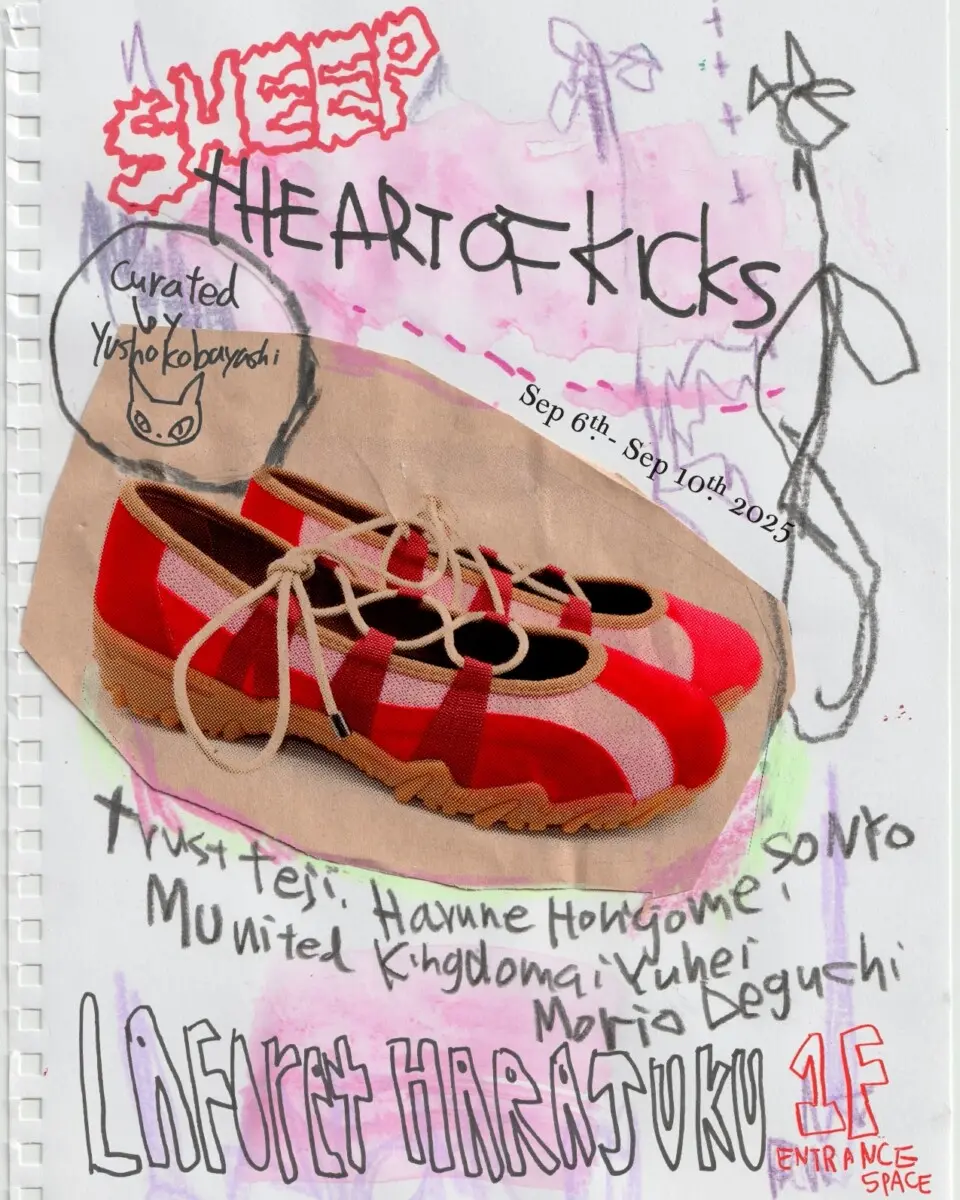 SHEEP
THE ART OF kicks
Curated
by
Yusho kobayashi
Sep 6th - Sep 10th 2025
trust teji, Harune Horigome, soNYo
MUnited Kingdomai Yuhei
Morio Deguchi
LAFOret HARAJUKU 1F
ENTRANCE
SPACE